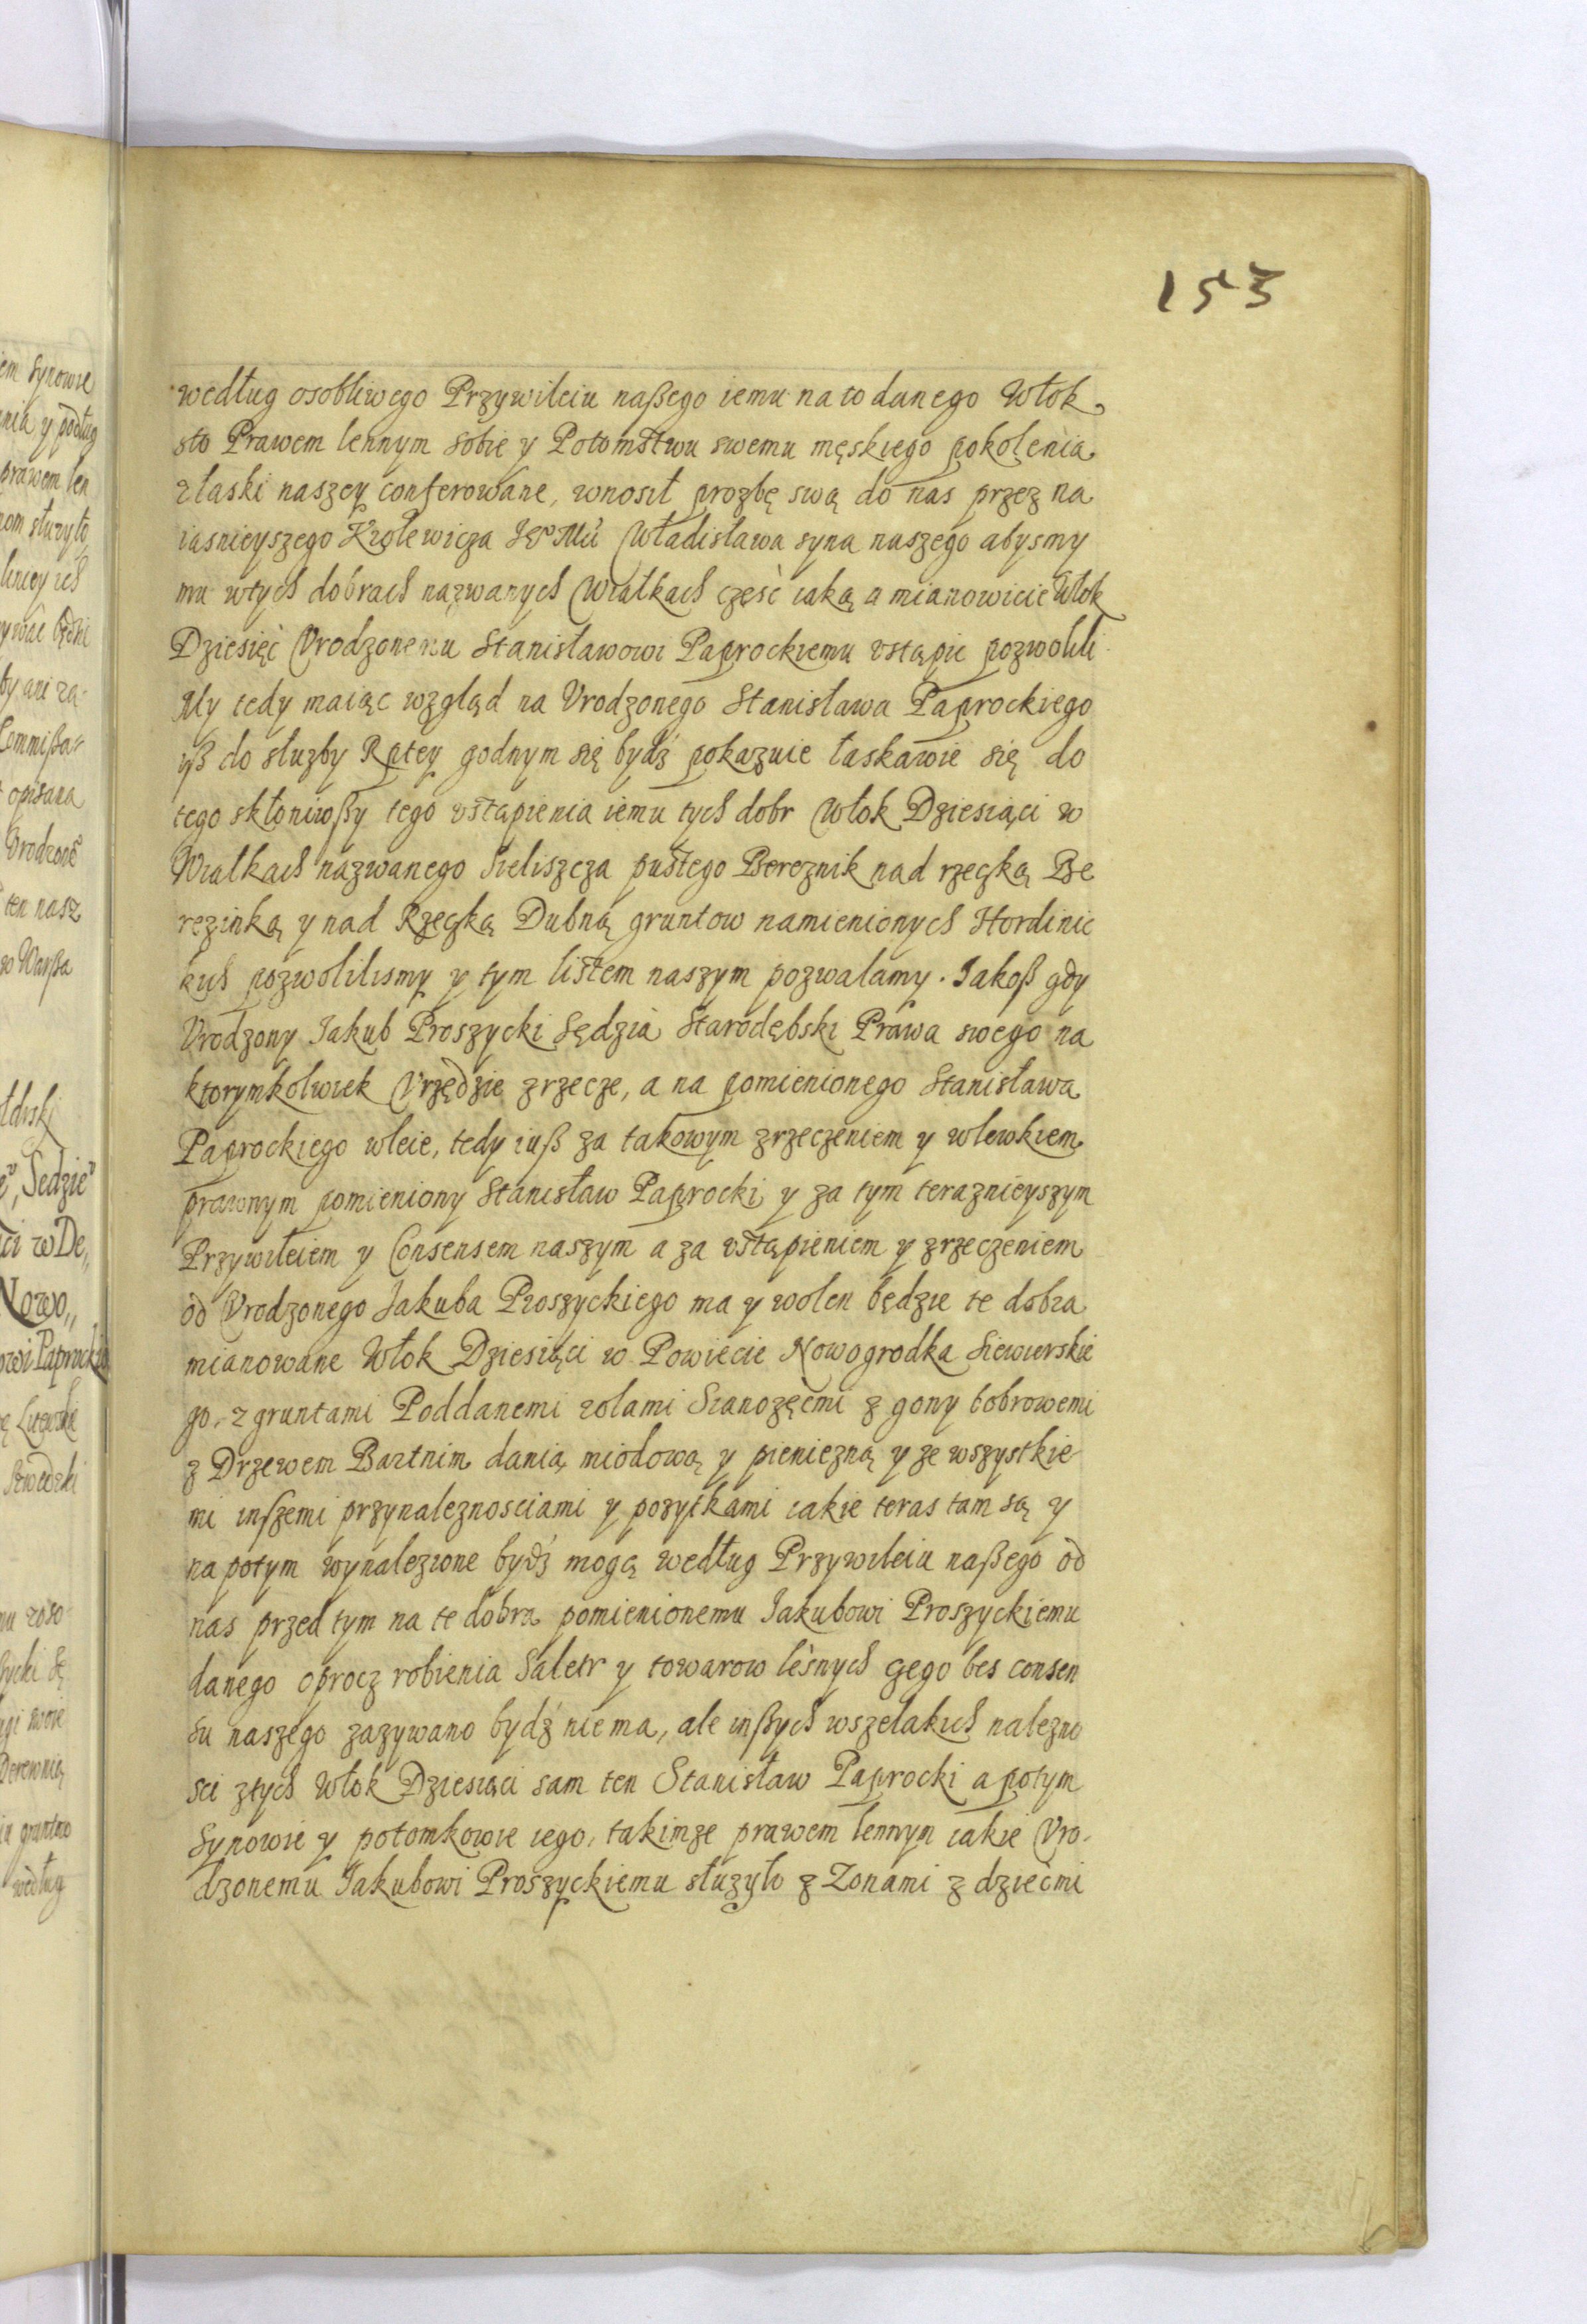 153
według osobliwego Przywileiu naßego iemu na to danego Włok
sto Prawem lennym sobie y Potomstwu swemu męskiego pokolenia
z łaski naszey conferowane, wnosił prozbę swą do nas przez na
iasnieyszego Krolewicza Władisława syna naszego abysmy
mu wtych dobrach nazwanych Wialkach częsć iaką a mianowicie Włok
Dziesięć Vrodzonemu Stanisławowi Paprockiemu vstąpic pozwolili
My tedy maiąc wzgląd na Vrodzonego Stanisława Paprockiego
yß do słuzby Rptey godnym się bydź pokazuie łaskawie się do
tego skłoniwßy tego vstąpienia iemu tych dobr Włok Dziesiąci w
Wialkach nazwanego Sieliszcza pustego Bereznik nad rzeczką Be
rezinką y nad Rzeczką Dubną gruntow namienionych Hordinic
kich pozwolilismy y tym listem naszym pozwalamy. Jakoß gdy
Vrodzony Jakub Proszycki Sędzia Starodębski Prawa swego na
ktorymkolwiek Vrzędzie zrzecze, a na pomienionego Stanisława
Paprockiego wleie, tedy iuß za takowym zrzeczeniem y wlewkiem
prawnym pomieniony Stanisław Paprocki y za tym teraznieyszym
Przywileiem y Consensem naszym a za vstąpieniem y zrzeczeniem
od Vrodzonego Jakuba Proszyckiego ma y wolen będzie te dobra
mianowane Włok Dziesiąci w Powiecie Nowogrodka Siewierskie
go, z gruntami Poddanemi rolami Sianozęćmi z gony bobrowemi
z Drzewem Bartnim danią miodową y pieniezną y ze wszystkie
mi inszemi przynaleznosciami y pozytkami iakie teras tam są y
na potym wynalezione bydź mogą według Przywileiu naßego od
nas przed tym na te dobra pomienionemu Jakubowi Proszyckiemu
danego oprocz robienia Saletr y towarow leśnych czego bes consen
su naszego zazywano bydź niema, ale inßych wszelakich nalezno
sci ztych Włok Dziesiąci sam ten Stanisław Paprocki a potym
Synowie y potomkowie iego, takimze prawem lennym iakie Vro
dzonemu Jakubowi Proszyckiemu słuzyło z Zonami z dziećmi